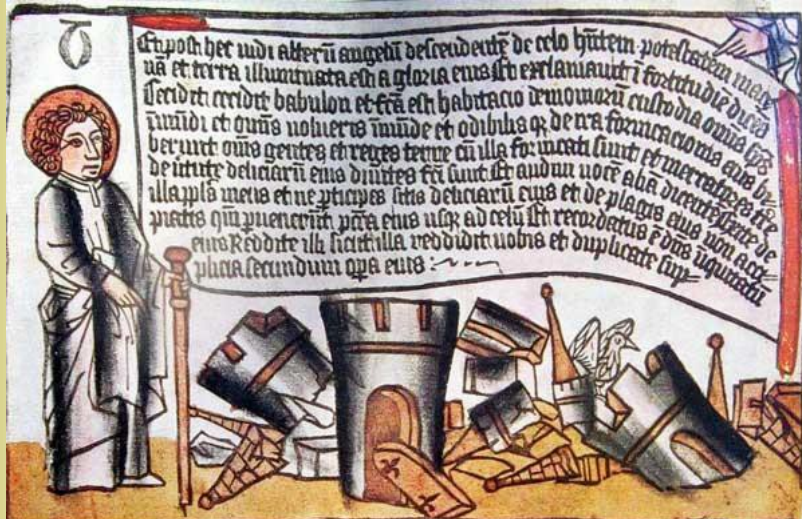 Et post hec vidi alterū angelū descendentē de celo hñtem potestatem mag
nā et terra illuminata est a gloria eius Et exclamauit ī fortitudīe dicēs
Cecidit cecidit babulon et fcā est habitacio demoniorū custodia omīs sp̄s
īmūdi et omīs volucris īmūde et odibilis qz de ira fornicacionis eius bi
berunt omīs gentes et reges terre cū illa fornicati sunt et mercatores t̄re
de v̄tute deliciarū eius diuites fcī sunt Et audiui vocē aliā dicentē Exite de
illa pplōs meus et ne p̄ticipes sitis deliciarū eius et de plagis eius non acci
piatis qm̄ puenerūt pctā eius usqz ad celū Et recordatus ē dn̄s iniquitatū
eius Reddite illi sicut illa reddidit uobis et duplicate dup
plicia secundum opa eius :